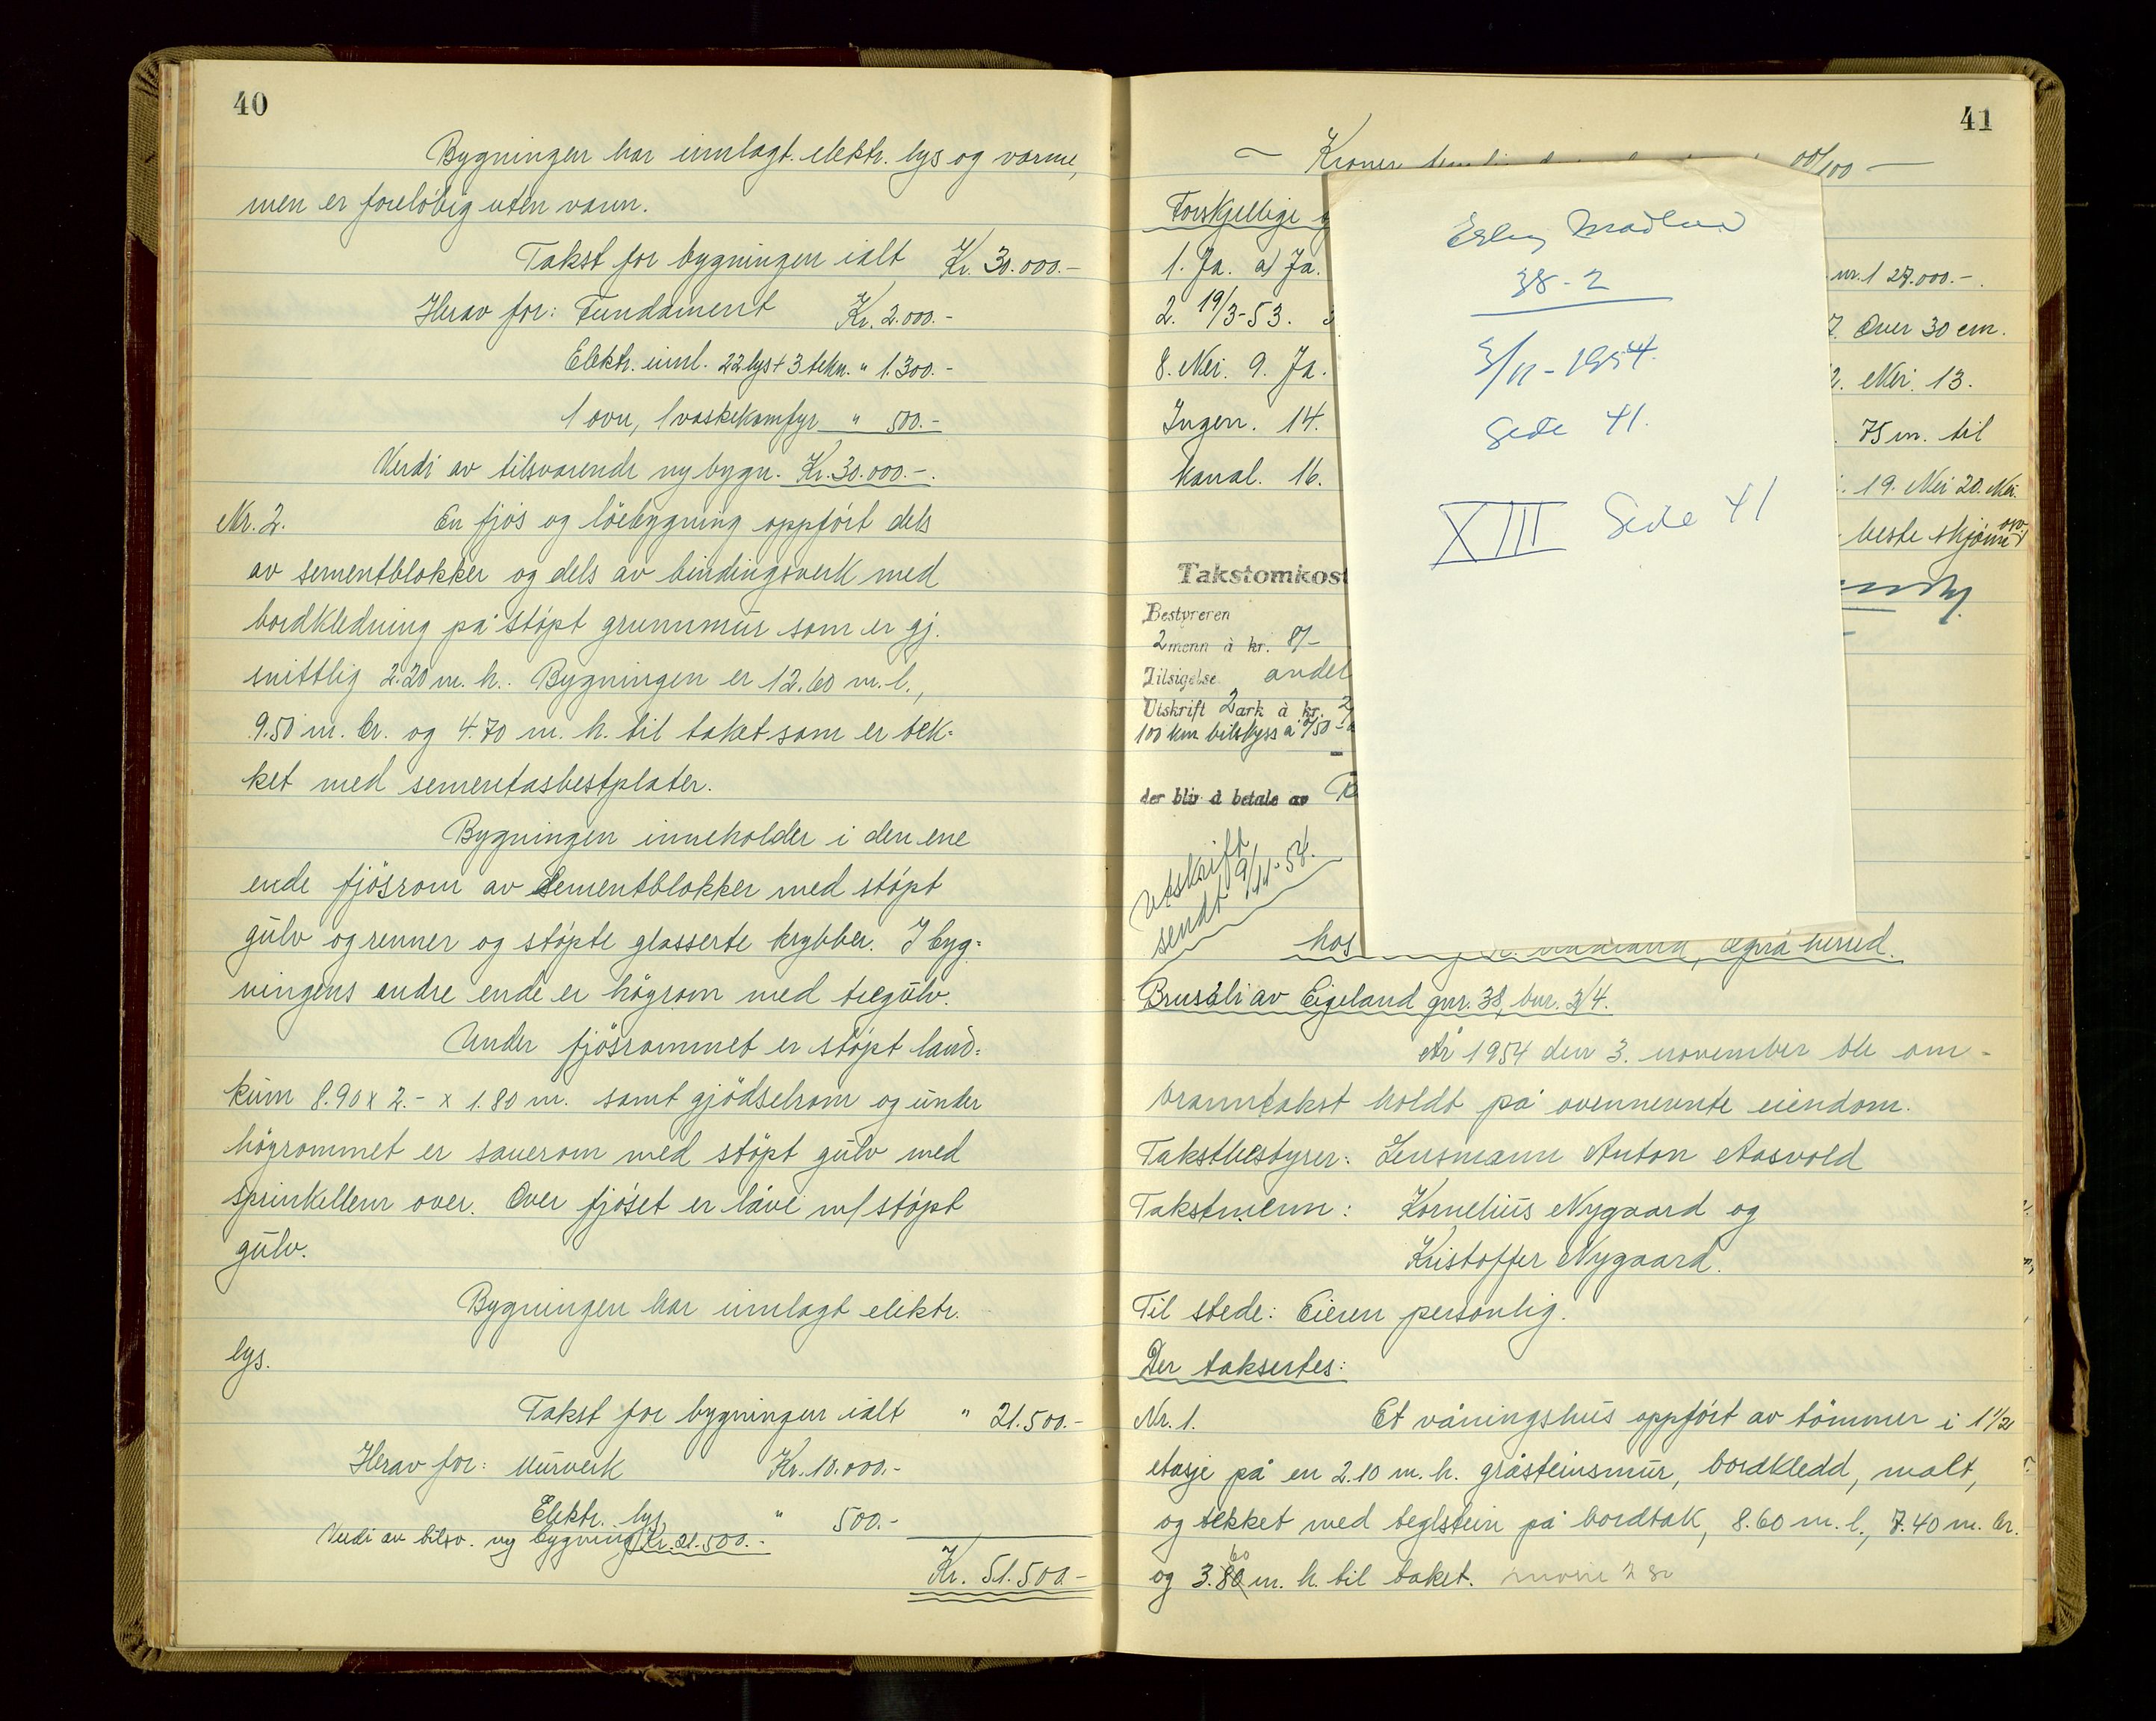 40
Bygningen har innlagt elektr. lys og varme,
men er foreløbig uten vann.
Takst for bygningen ialt Kr. 30.000.-
Herav for: Fundament Kr. 2.000.-
Elektr. innl. 22 lys + 3 tekn. " 1.300.-
1 ovn, 1 vaskekomfyr " 500.-
Verdi av tilsvarende ny bygn. Kr. 30.000.-.
Nr. 2. En fjøs og löebygning oppført dels
av sementblokker og dels av bindingsverk med
bordkledning på støpt grunnmur som er gj.
snittlig 2.20 m. h. Bygningen er 12.60 m. l.,
9.50 m. br. og 4.70 m. h. til taket som er tek-
ket med sementasbestplater.
Bygningen inneholder i den ene
ende fjösrom av sementblokker med støpt
gulv og renner og støpte glasserte krybber. I byg-
ningens andre ende er högrom med tregulv.
Under fjösrommet er støpt land-
kum 8.90 x 2.- x 1.80 m. samt gjödselrom og under
högrommet er sauerom med stöpt gulv med
sprinkellem over. Over fjøset er låve m/ støpt
gulv.
Bygningen har innlagt elektr.
lys.
Takst for bygningen ialt " 21.500.-
Herav for: Murverk Kr. 10.000.-
Elektr. lys " 500.-
Verdi av tilsv. ny bygning Kr. 21.500.-
Kr. 51.500.-
41
~ Kroner 00/100 —
Forskjellige
1. Ja. a) Ja. nr. 1 27.000.-.
2. 19/3-53. 7. Over 30 cm.
8. Nei. 9. Ja. Nei. 13.
Ingen. 14. 75 m. til
kanal. 16. 19. Nei 20. Nei.
beste skjønn
Takstomkost
Bestyreren
2 menn à kr. 8/-
Tilsigelse andel
Utskrift 2 ark à kr. 2
100 km bilskyss a
der bliv å betale av
Utskrift
sendt 9/11-54.
Erling Madland
38-2
3/11-1954.
Side 41.
XIII Side 41
hos herred.
Brusali av Eigeland gnr. 38, bnr. 2/4.
År 1954 den 3. november ble om-
branntakst holdt på ovennevnte eiendom.
Takstbestyrer: Lensmann Anton Aasvold
Takstmenn: Kornelius Nygaard og
Kristoffer Nygaard.
Til stede: Eieren personlig.
Der taksertes:
Nr. 1. Et våningshus oppført av tömmer i 1 1/2
etasje på en 2.10 m. h. gråsteinsmur, bordkledd, malt,
og tekket med teglstein på bordtak, 8.60 m. l., 7.40 m. br.
60
og 3.80 m. h. til taket.